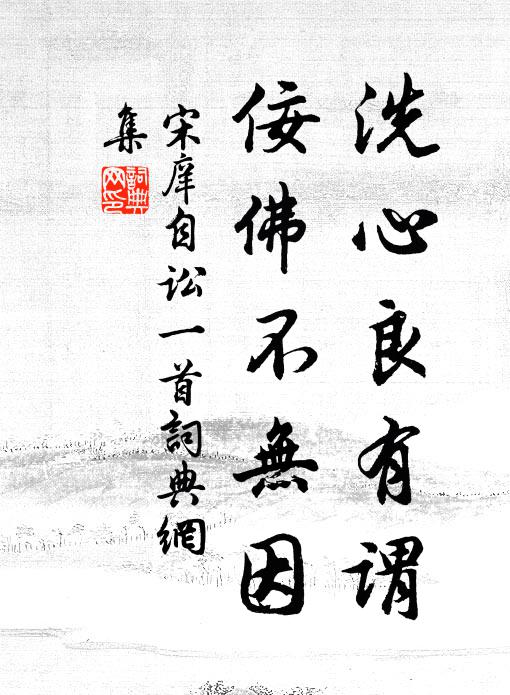 洗心良有謂
佞佛不無因
宋庠自訟一首詞典網
集
詞典
網印